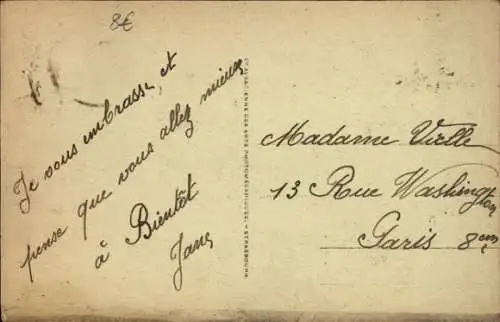 8€
Je vous embrasse, et
pense que vous allez mieux
à Bientôt
Jane
Madame Vielle
13 Rue Washington
Paris 8em